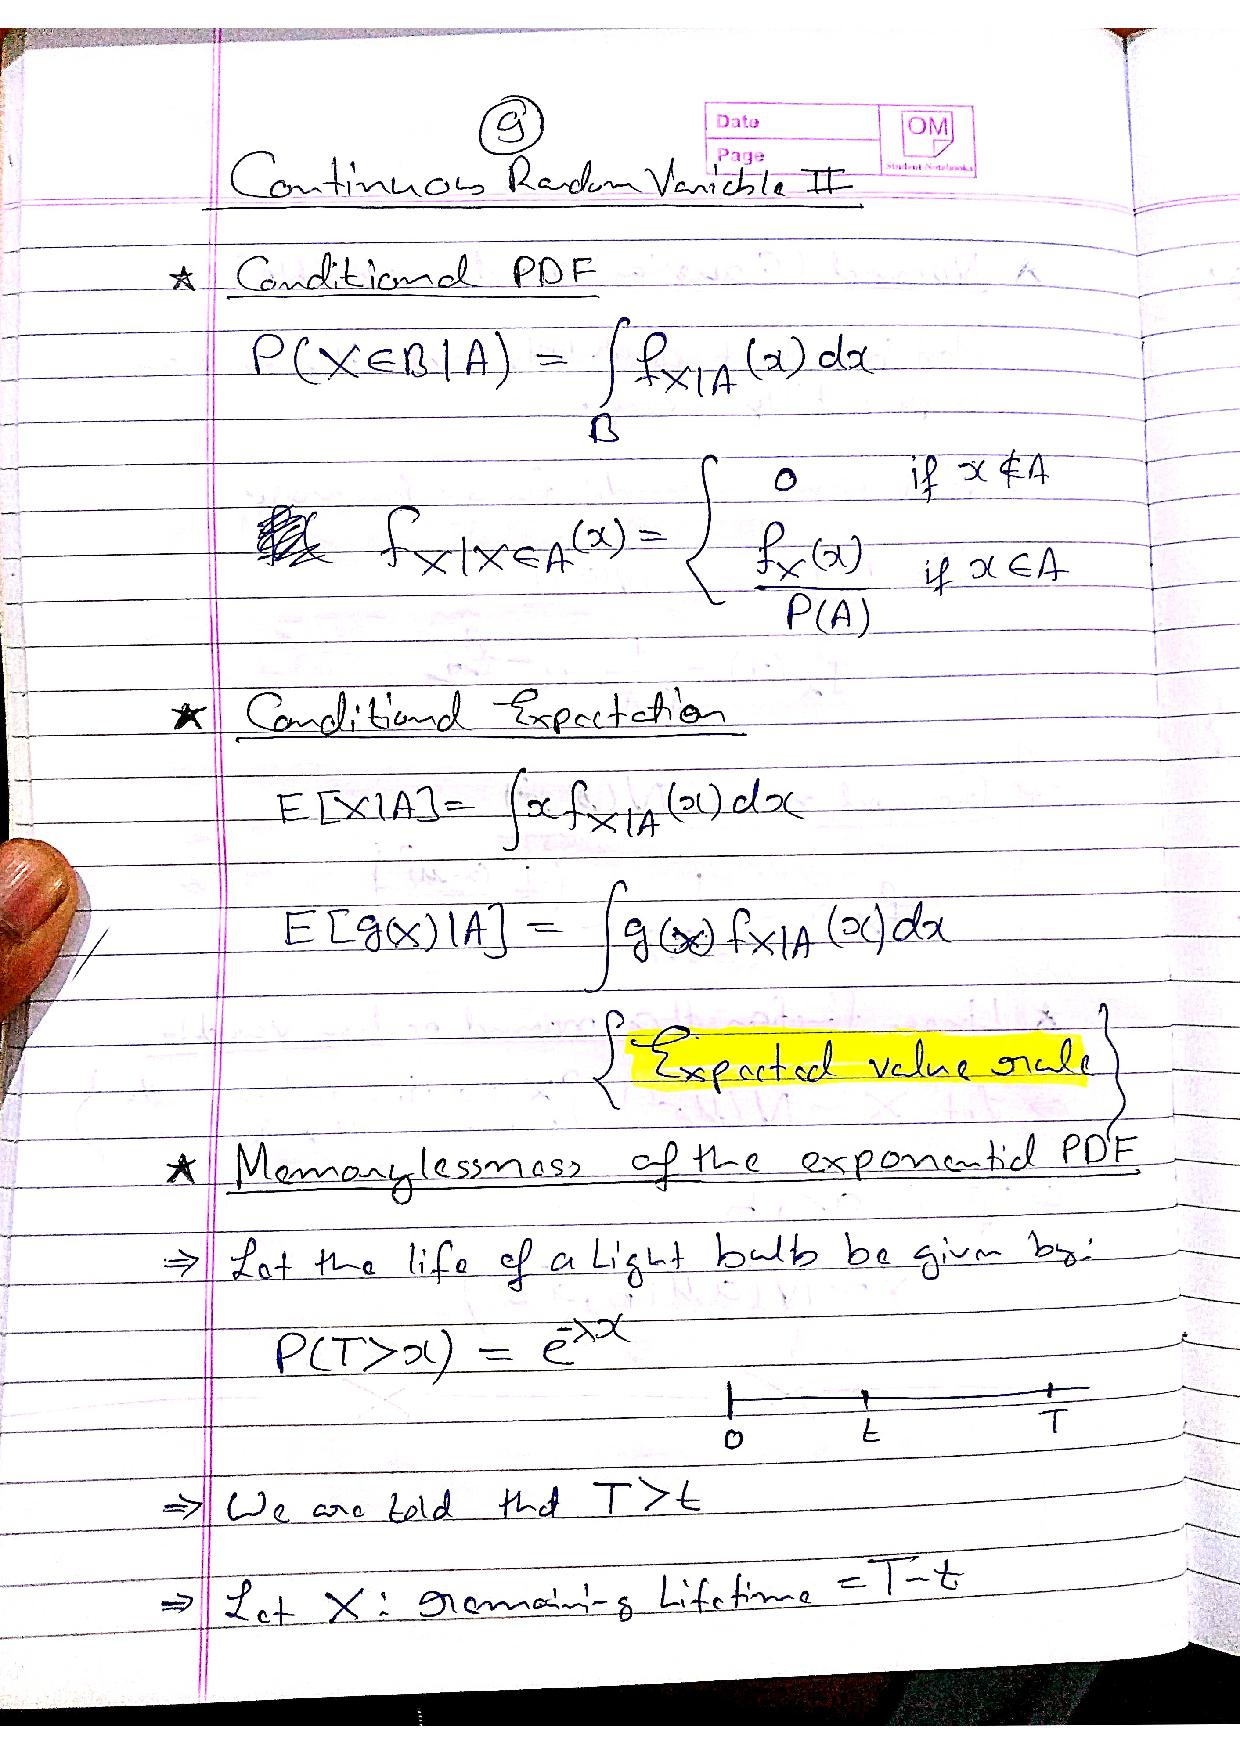 9
Date
OM
Page
Student Notebooks
Continuous Random Variable II
★ Conditional PDF
P(X∈B|A) = ∫_B f_{X|A}(x) dx
f_{X|X∈A}(x) = { 0 if x∉A
f_X(x)/P(A) if x∈A
★ Conditional Expectation
E[X|A] = ∫x f_{X|A}(x) dx
E[g(X)|A] = ∫g(x) f_{X|A}(x) dx
{Expected value rule}
★ Memorylessness of the exponential PDF
⇒ Let the life of a Light bulb be given by:
P(T>x) = e^{-λx}
0 t T
⇒ We are told that T>t
⇒ Let X: remaining Lifetime = T-t